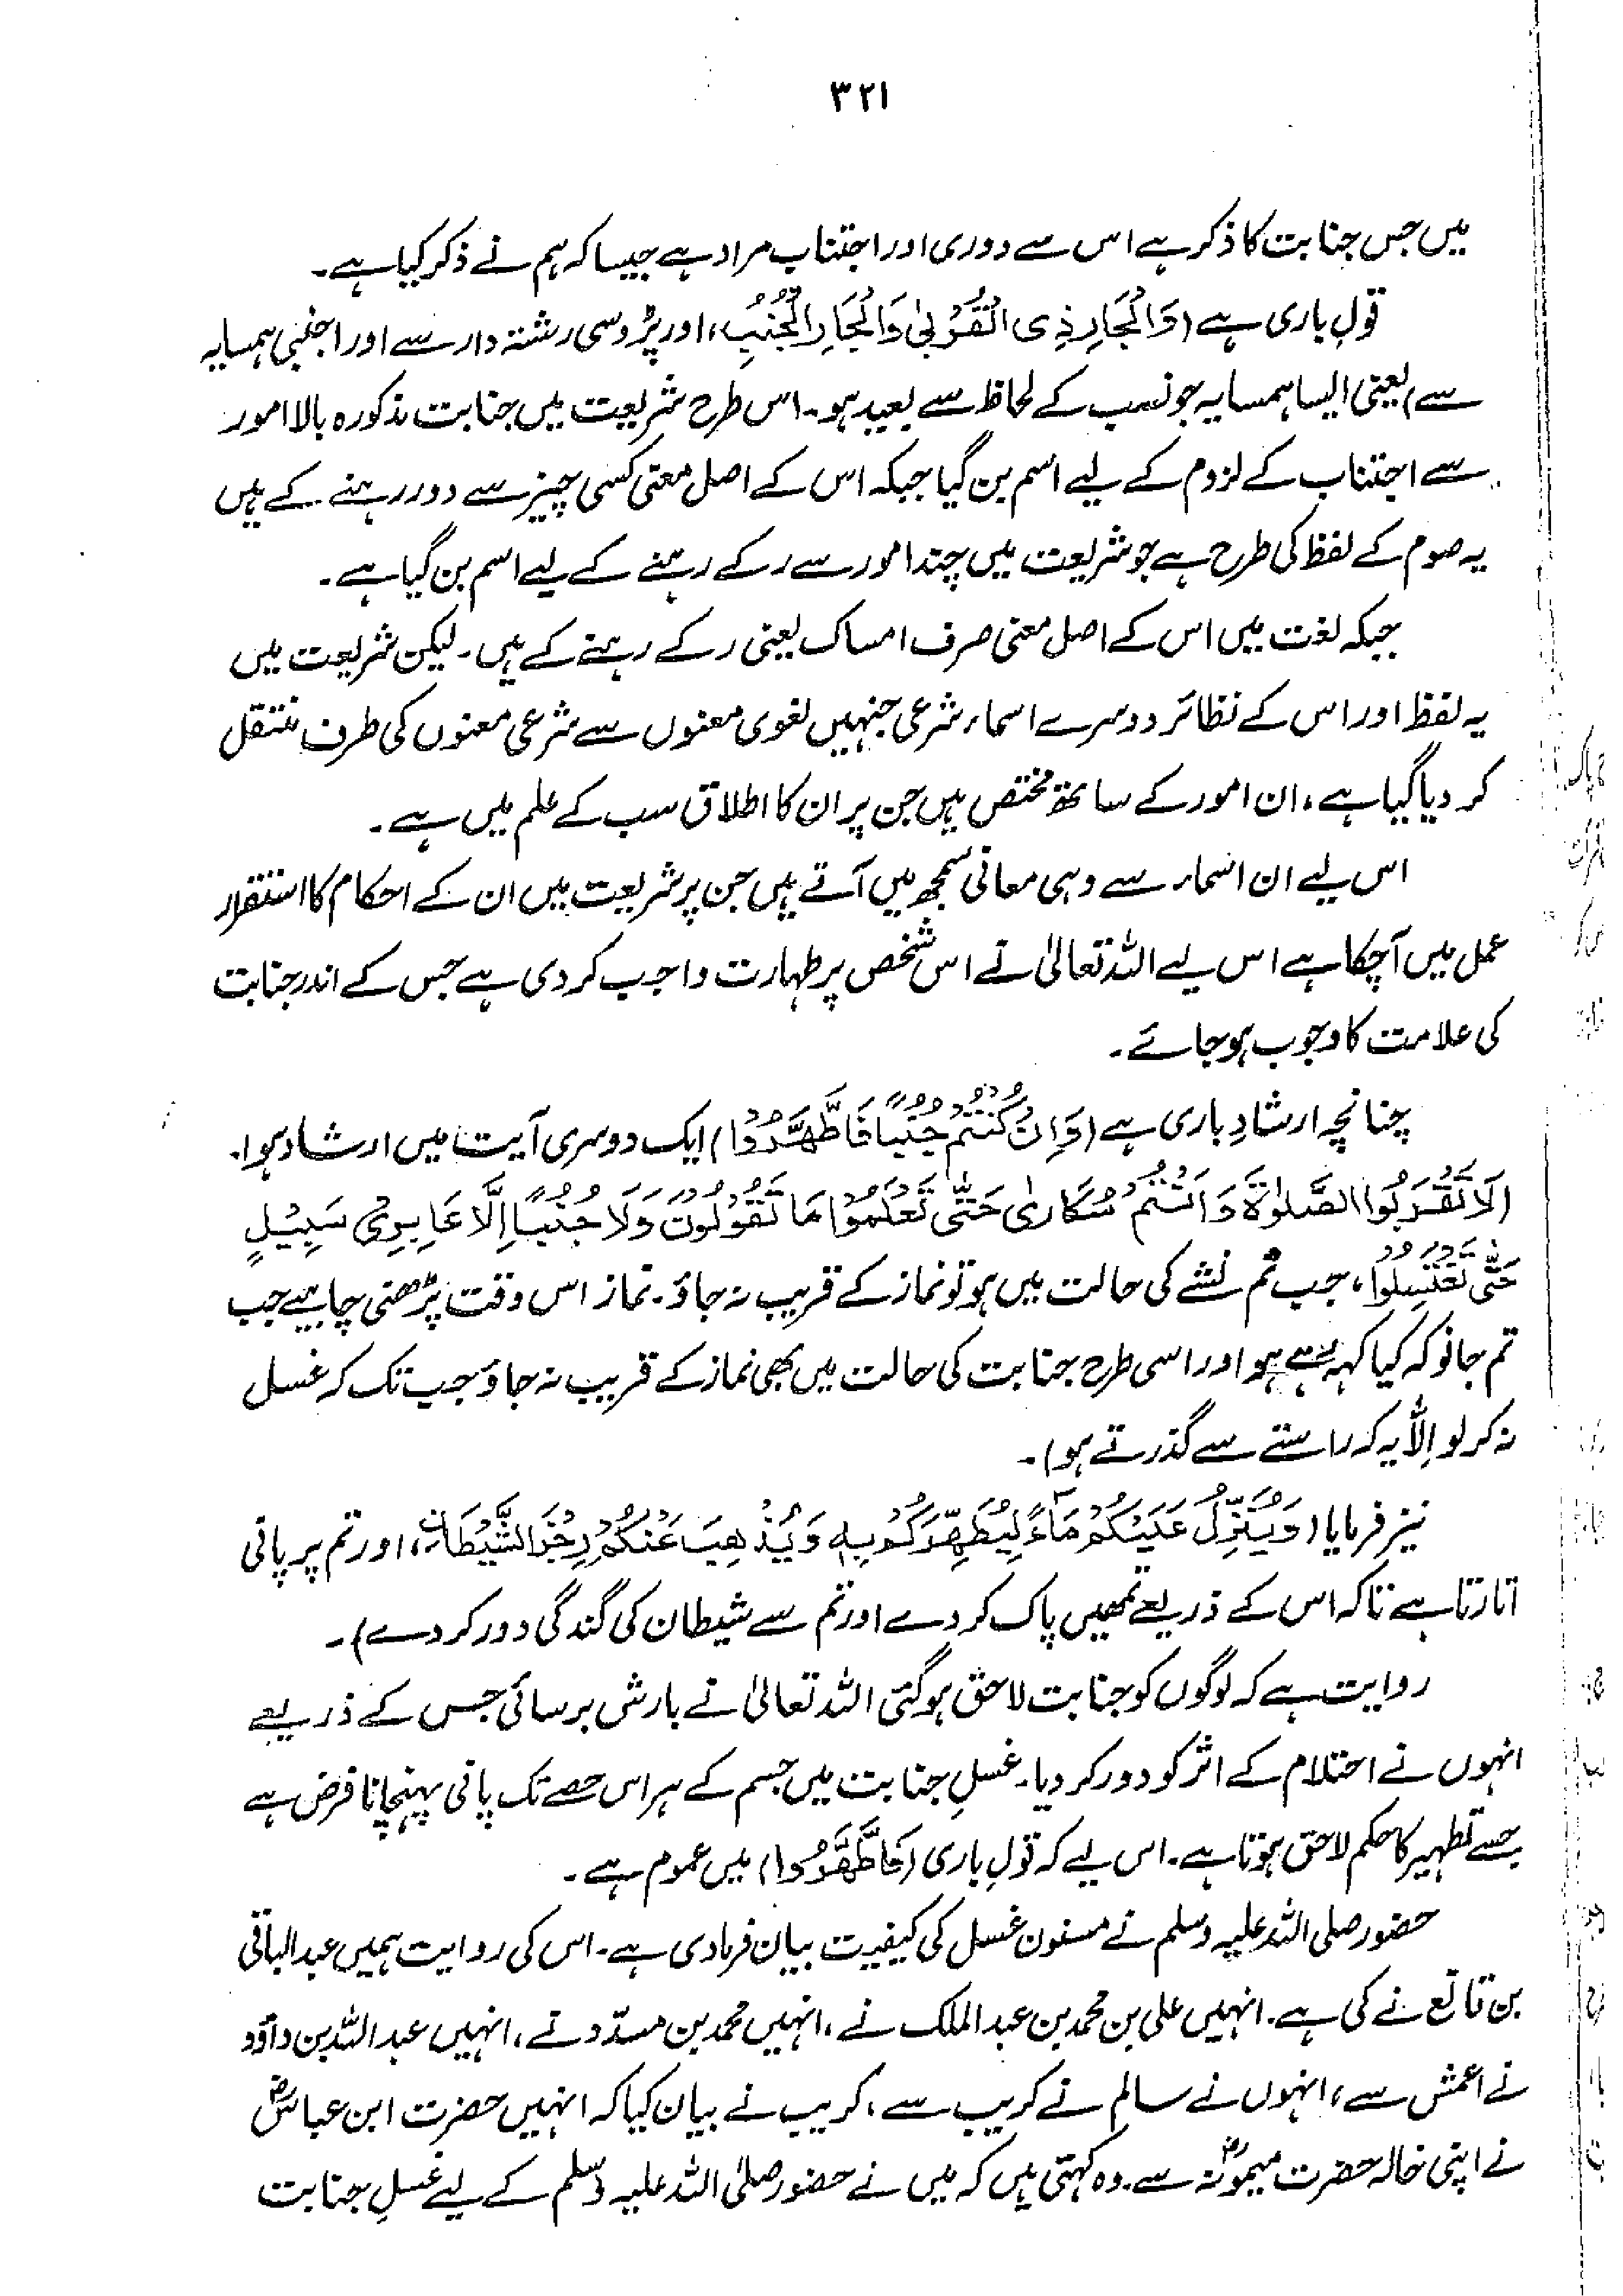 ۳۲۱
میں جس جنابت کا ذکر ہے اس سے دوری اور اجتناب مراد ہے جیسا کہ ہم نے ذکر کیا ہے۔
قولِ باری ہے (وَالْجَارِ ذِی الْقُرْبیٰ وَالْجَارِ الْجُنُبِ، اور پڑوسی رشتہ دار سے اور اجنبی ہمسایہ
سے) یعنی ایسا ہمسایہ جو نسب کے لحاظ سے بعید ہو۔ اس طرح شریعت میں جنابت مذکورہ بالا امور
سے اجتناب کے لزوم کے لیے اسم بن گیا جبکہ اس کے اصل معنی کسی چیز سے دور رہنے کے ہیں
یہ صوم کے لفظ کی طرح ہے جو شریعت میں چند امور سے رکے رہنے کے لیے اسم بن گیا ہے۔
جبکہ لغت میں اس کے اصل معنی صرف امساک یعنی رکے رہنے کے ہیں۔ لیکن شریعت میں
یہ لفظ اور اس کے نظائر دوسرے اسماء شرعی جنہیں لغوی معنوں سے شرعی معنوں کی طرف منتقل
کر دیا گیا ہے، ان امور کے ساتھ مختص ہیں جن پر ان کا اطلاق سب کے علم میں ہے۔
اس لیے ان اسماء سے وہی معانی سمجھ میں آتے ہیں جن پر شریعت میں ان کے احکام کا استقرار
عمل میں آچکا ہے اس لیے اللہ تعالیٰ نے اس شخص پر طہارت واجب کر دی ہے جس کے اندر جنابت
کی علامت کا وجوب ہو جائے۔
چنانچہ ارشادِ باری ہے (وَاِنْ کُنْتُمْ جُنُبًا فَاطَّهَّرُوْا) ایک دوسری آیت میں ارشاد ہوا۔
(لَا تَقْرَبُوا الصَّلٰوةَ وَاَنْتُمْ سُکَارٰی حَتّٰی تَعْلَمُوْا مَا تَقُوْلُوْنَ وَلَا جُنُبًا اِلَّا عَابِرِیْ سَبِیْلٍ
حَتّٰی تَغْتَسِلُوْا، جب تم نشے کی حالت میں ہو تو نماز کے قریب نہ جاؤ۔ نماز اس وقت پڑھنی چاہیے جب
تم جانو کہ کیا کہہ رہے ہو اور اسی طرح جنابت کی حالت میں بھی نماز کے قریب نہ جاؤ جب تک کہ غسل
نہ کر لو اِلّا یہ کہ راستے سے گذرتے ہو)۔
نیز فرمایا (وَیُنَزِّلُ عَلَیْکُمْ مَآءً لِیُطَهِّرَکُمْ بِهٖ وَیُذْهِبَ عَنْکُمْ رِجْزَ الشَّیْطَانِ، اور تم پر پانی
اتارتا ہے تاکہ اس کے ذریعے تمھیں پاک کر دے اور تم سے شیطان کی گندگی دور کر دے)۔
روایت ہے کہ لوگوں کو جنابت لاحق ہو گئی اللہ تعالیٰ نے بارش برسائی جس کے ذریعے
انہوں نے احتلام کے اثر کو دور کر دیا۔ غسلِ جنابت میں جسم کے ہر اس حصے تک پانی پہنچانا فرض ہے
جسے تطہیر کا حکم لاحق ہوتا ہے۔ اس لیے کہ قولِ باری (فَاطَّهَّرُوْا) میں عموم ہے۔
حضور صلی اللہ علیہ وسلم نے مسنون غسل کی کیفیت بیان فرما دی ہے۔ اس کی روایت ہمیں عبدالباقی
بن قانع نے کی ہے۔ انہیں علی بن محمد بن عبدالملک نے، انہیں محمد بن مسدّد نے، انہیں عبداللہ بن داؤد
نے اعمش سے، انہوں نے سالم نے کریب سے، کریب نے بیان کیا کہ انہیں حضرت ابن عباسؓ
نے اپنی خالہ حضرت میمونہؓ سے۔ وہ کہتی ہیں کہ میں نے حضور صلی اللہ علیہ وسلم کے لیے غسلِ جنابت